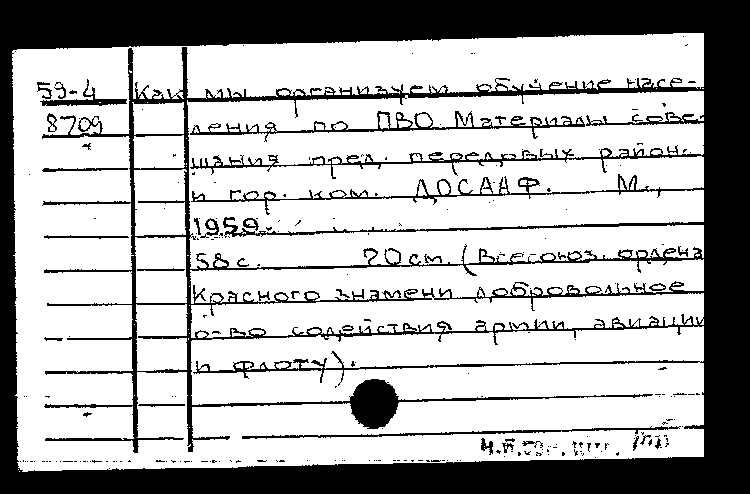 59-4 Как мы организуем обучение насе-
8709 ления по ПВО. Материалы сове-
щания пред. передовых район.
и гор. ком. ДОСААФ. М.,
1959.
58 с. 20 см. (Всесоюз. ордена
Красного знамени добровольное
о-во содействия армии, авиации
и флоту).